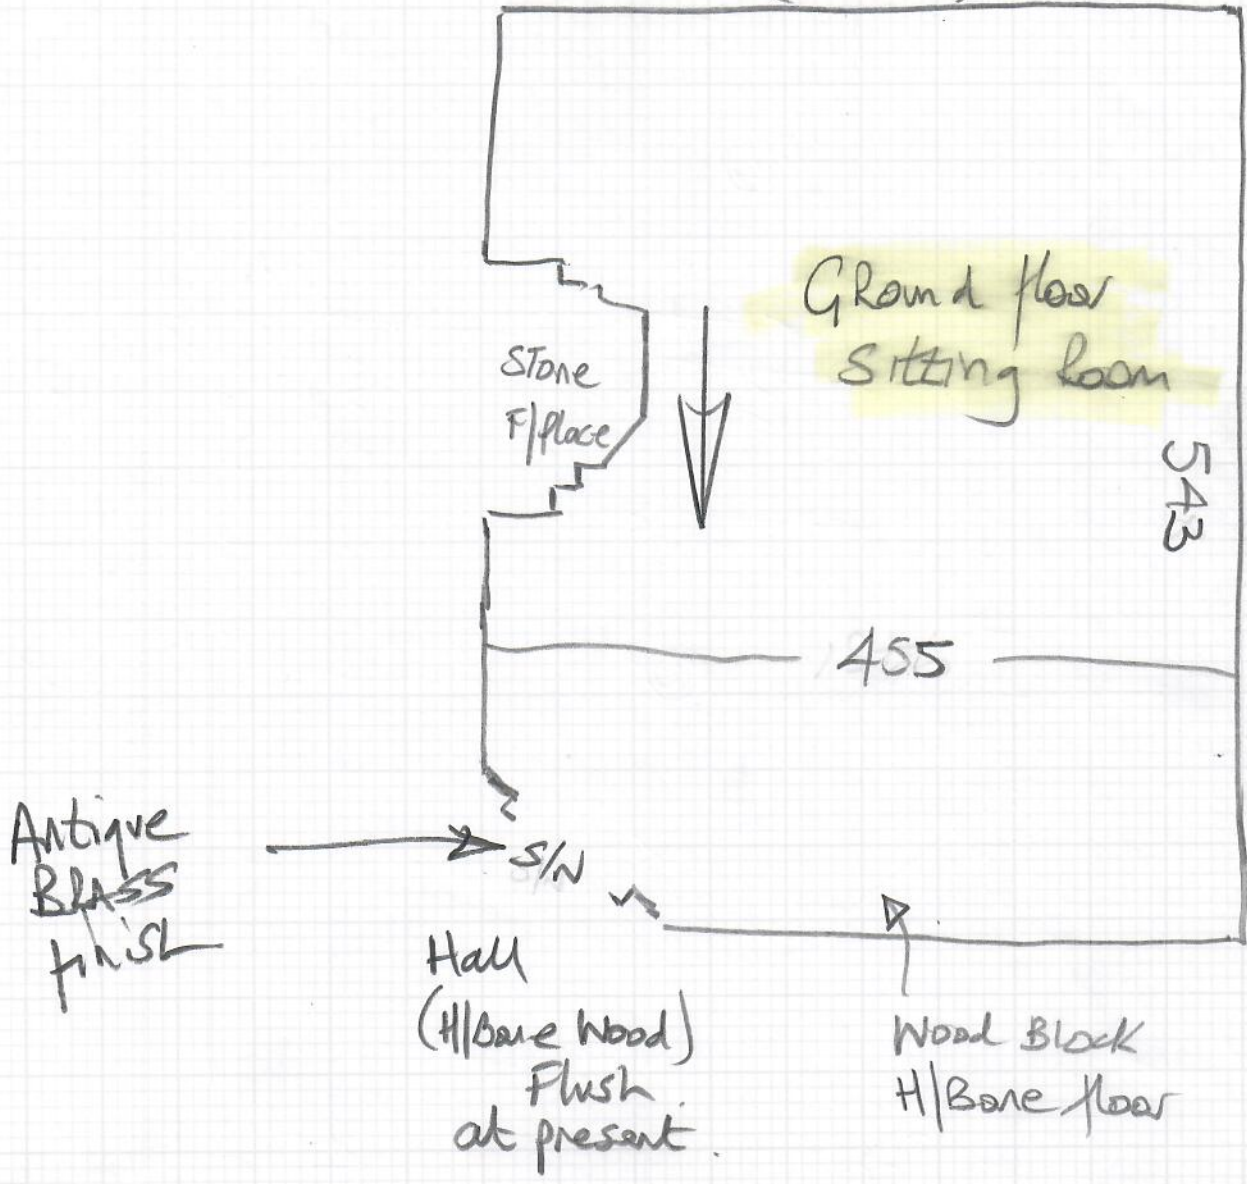 GRound floor
Sitting Room
Stone
F/place
543
455
Antique
BRASS
finish
S/N
Hall
(H/Bone Wood)
Flush
at present.
Wood Block
H/Bone floor